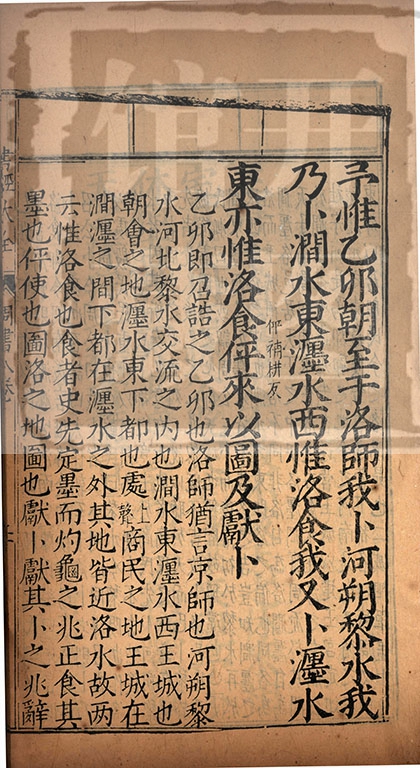 予惟乙卯朝至于洛師我卜河朔黎水我
乃卜澗水東瀍水西惟洛食我又卜瀍水
東亦惟洛食伻來以圖及獻卜
乙卯即召誥之乙卯也洛師猶言京師也河朔黎
水河北黎水交流之內也澗水東瀍水西王城也
朝會之地瀍水東下都也處上聲商民之地王城在
澗瀍之間下都在瀍水之外其地皆近洛水故两
云惟洛食也食者史先定墨而灼龜之兆正食其
墨也伻使也圖洛之地圖也獻卜獻其卜之兆辭